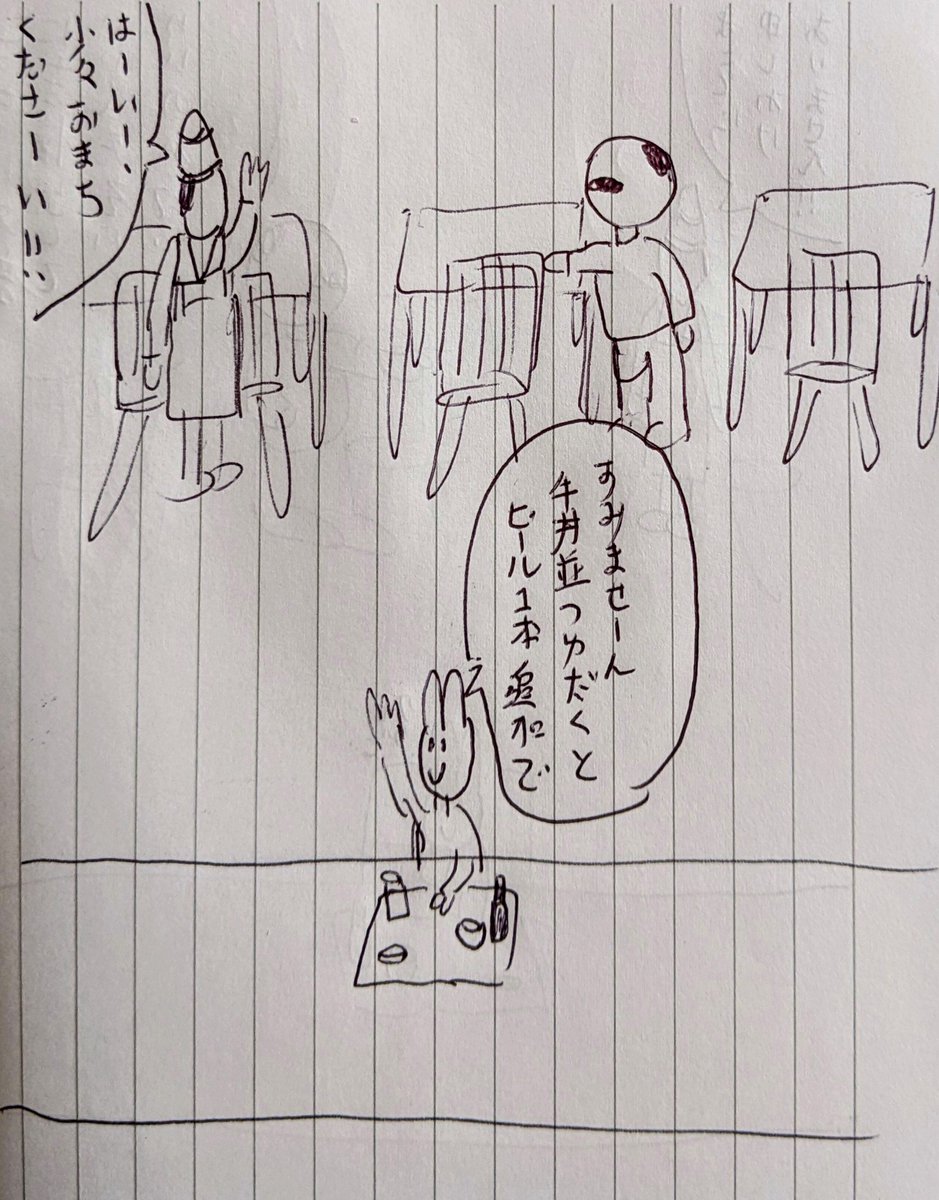 すみませーん
牛丼並つゆだくと
ビール1本追加で
はーいー、
少々おまち
くださーいい!!